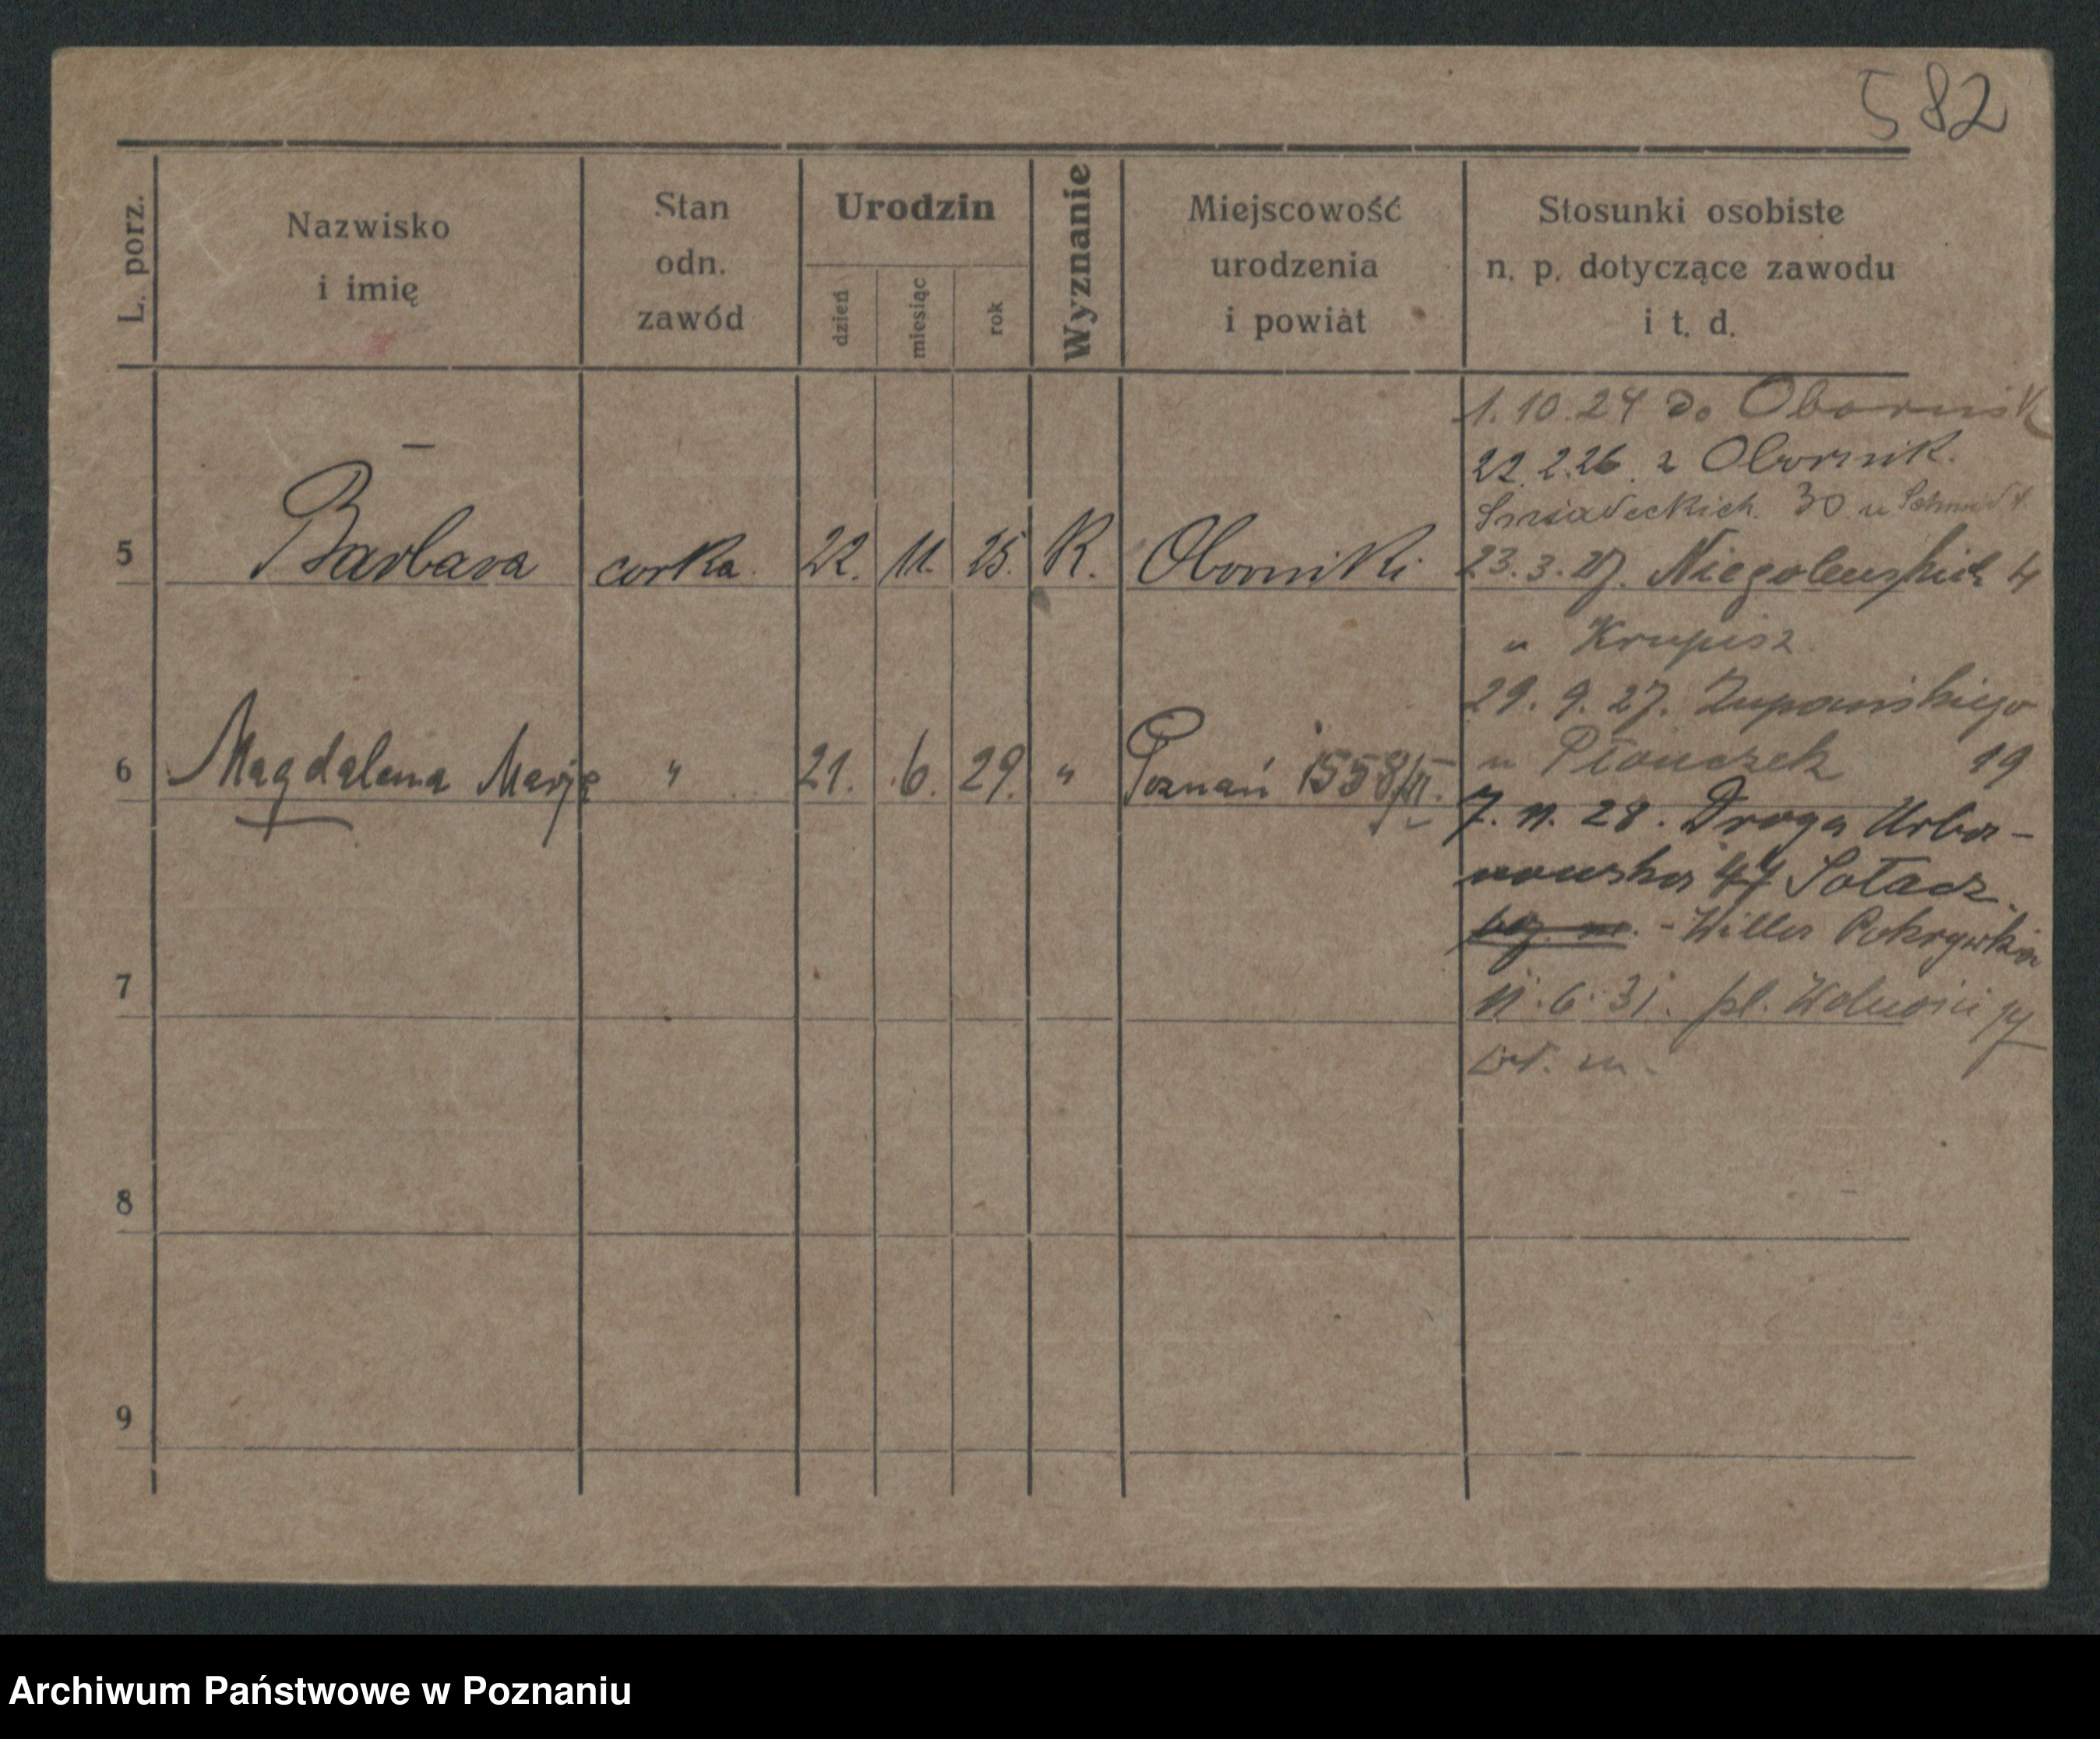 582
L. porz.
Nazwisko
i imię
Stan
odn.
zawód
Urodzin
dzień
miesiąc
rok
Wyznanie
Miejscowość
urodzenia
i powiat
Stosunki osobiste
n. p. dotyczące zawodu
i t. d.
5 Barbara corka 22. 11. 25. K. Oborniki
6 Magdalena Marja " 21. 6. 29. " Poznań 1558/II.
7
8
9
1.10.24 do Obornik
22.2.26. z Obornik.
Śniadeckich 30 u Schmidt
23.3.27. Niegolewskich 4
u Krupisz
29. 9. 27. Żupańskiego
u Płonczek 19
7. 11. 28. Droga Urba-
nowska 44 Sołacz.
- Willa Pokrzywka
11. 6. 31. pl. Wolności
wł. m.
Archiwum Państwowe w Poznaniu